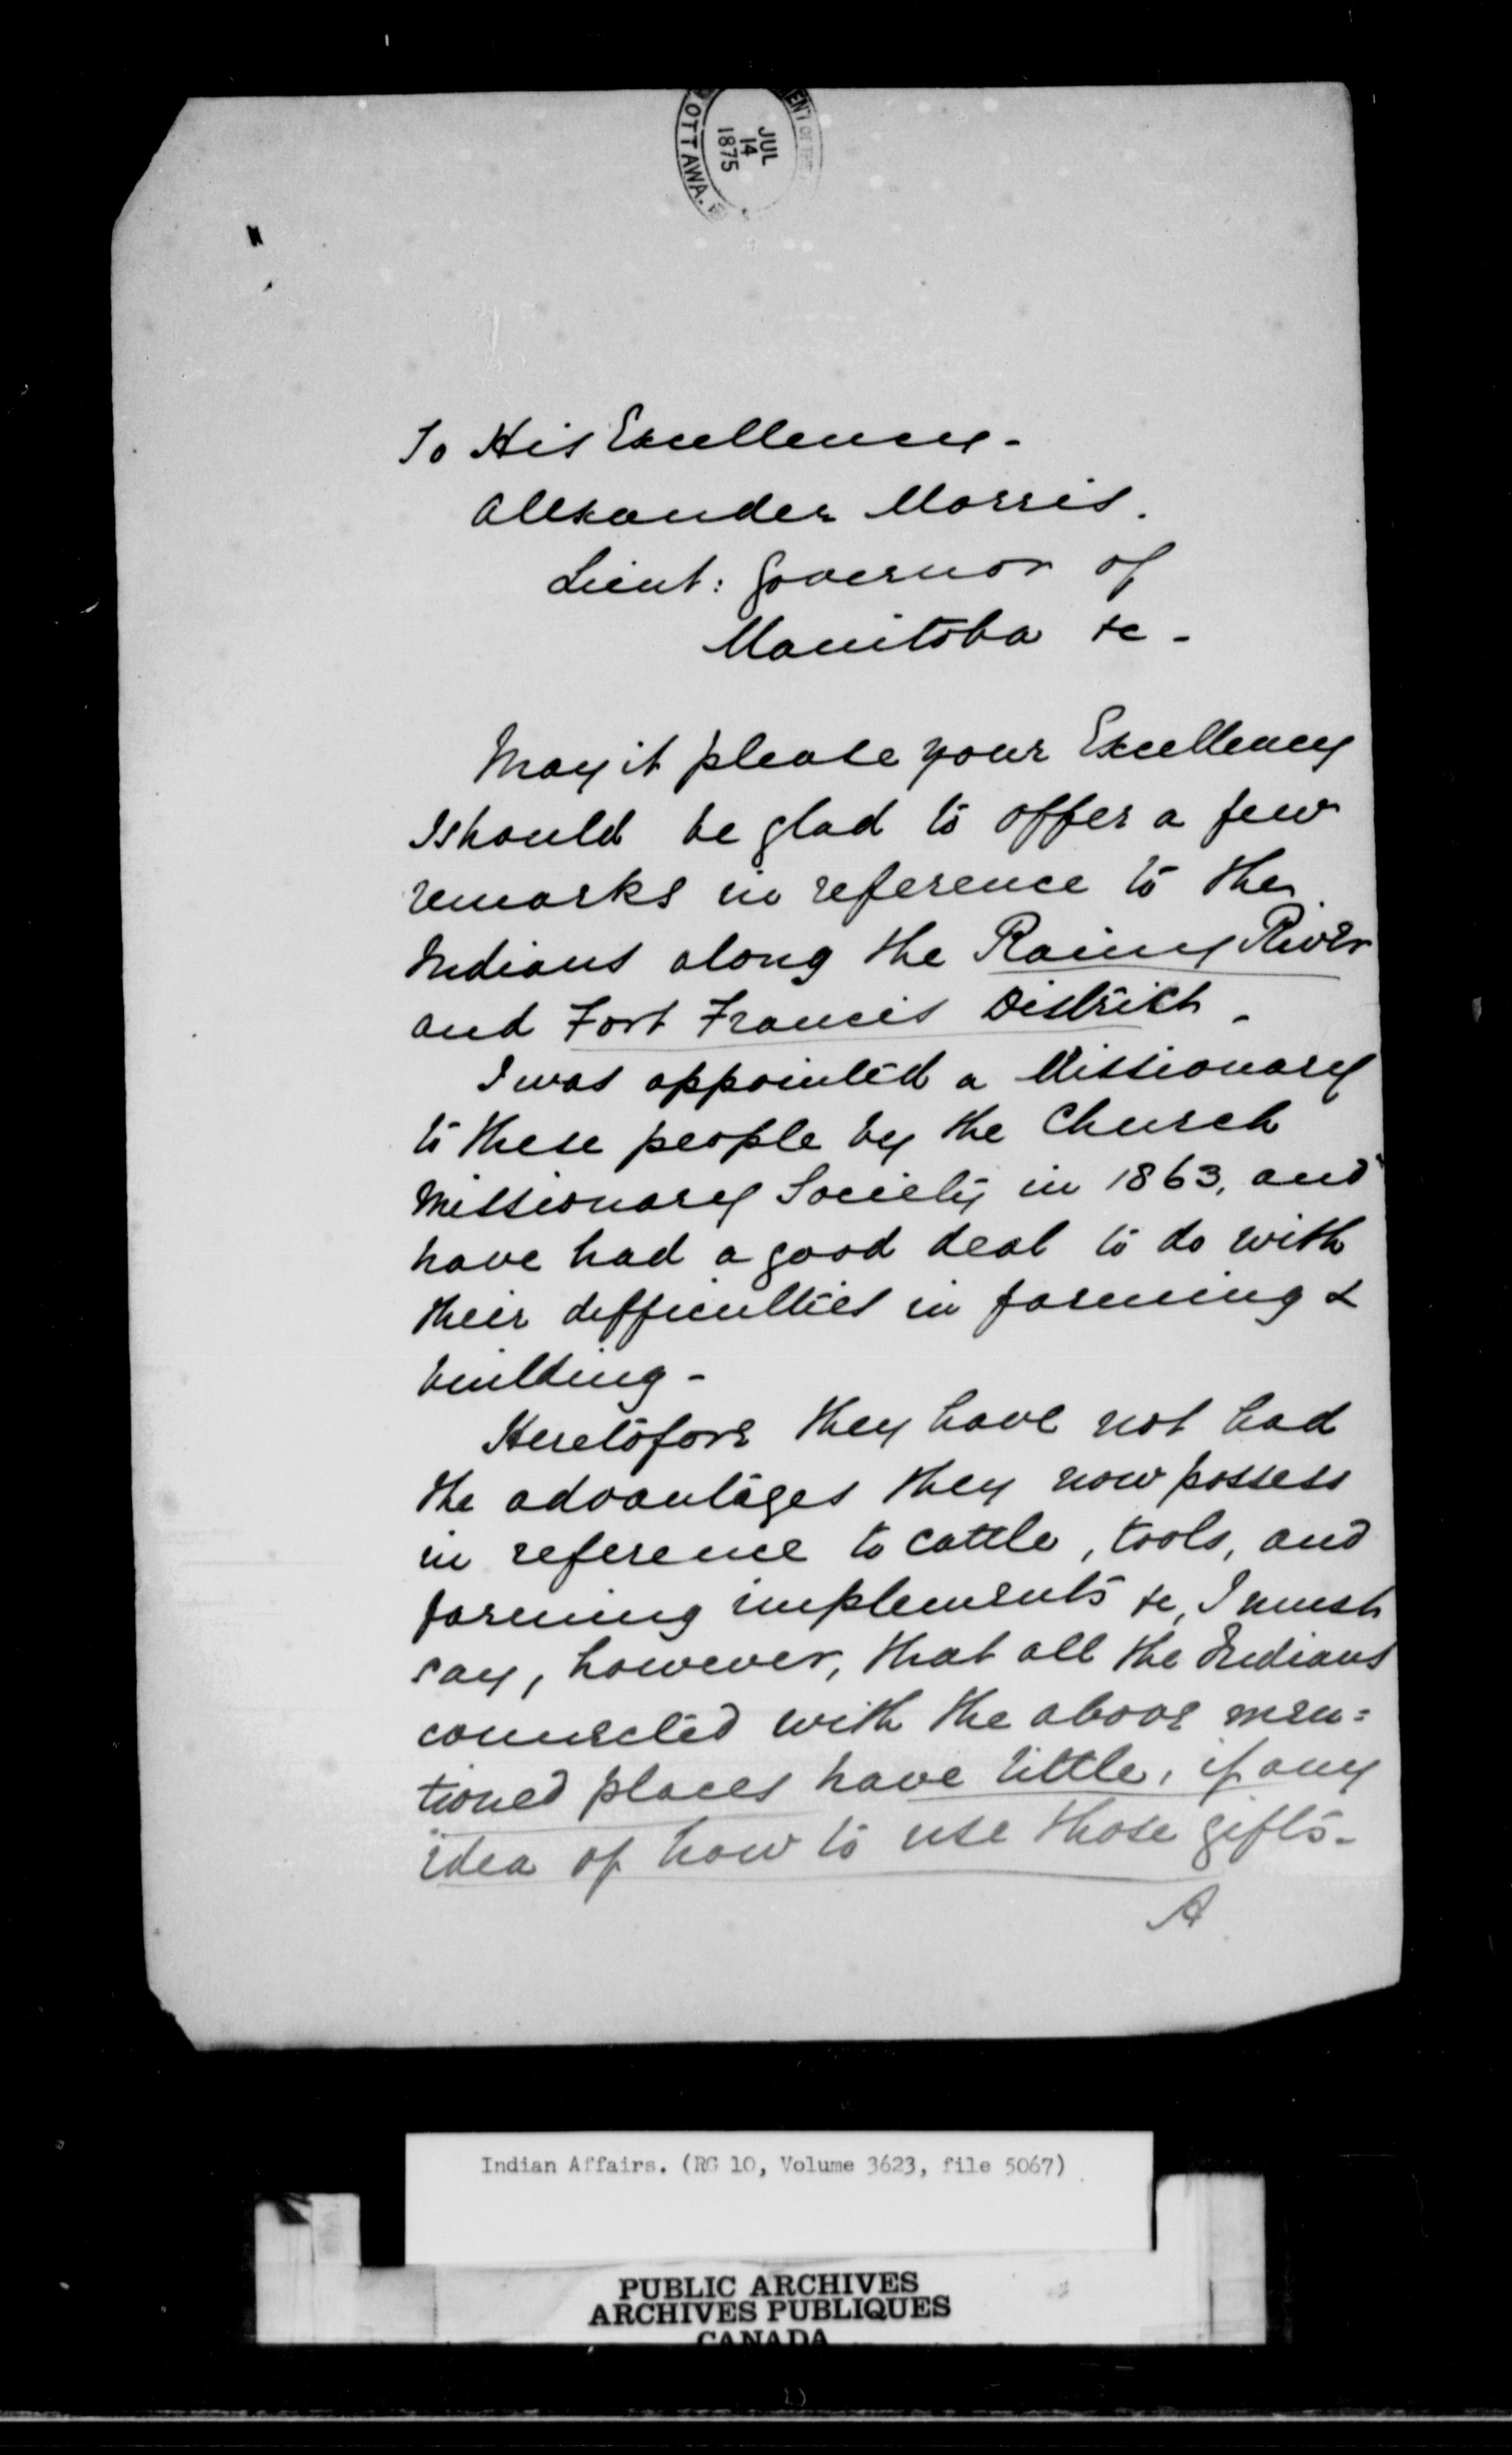 JUL
14
1875
OTTAWA.
To His Excellency -
Alexander Morris.
Lieut: Governor of
Manitoba &c -
May it please your Excellency
I should be glad to offer a few
remarks in reference to the
Indians along the Rainy River
and Fort Francis District -
I was appointed a Missionary
to these people by the Church
Missionary Society in 1863, and
have had a good deal to do with
their difficulties in farming &
building -
Heretofore they have not had
the advantages they now possess
in reference to cattle, tools, and
farming implements &c, I must
say, however, that all the Indians
connected with the above men=
tioned places have little, if any
idea of how to use those gifts -
A
Indian Affairs. (RG 10, Volume 3623, file 5067)
PUBLIC ARCHIVES
ARCHIVES PUBLIQUES
CANADA